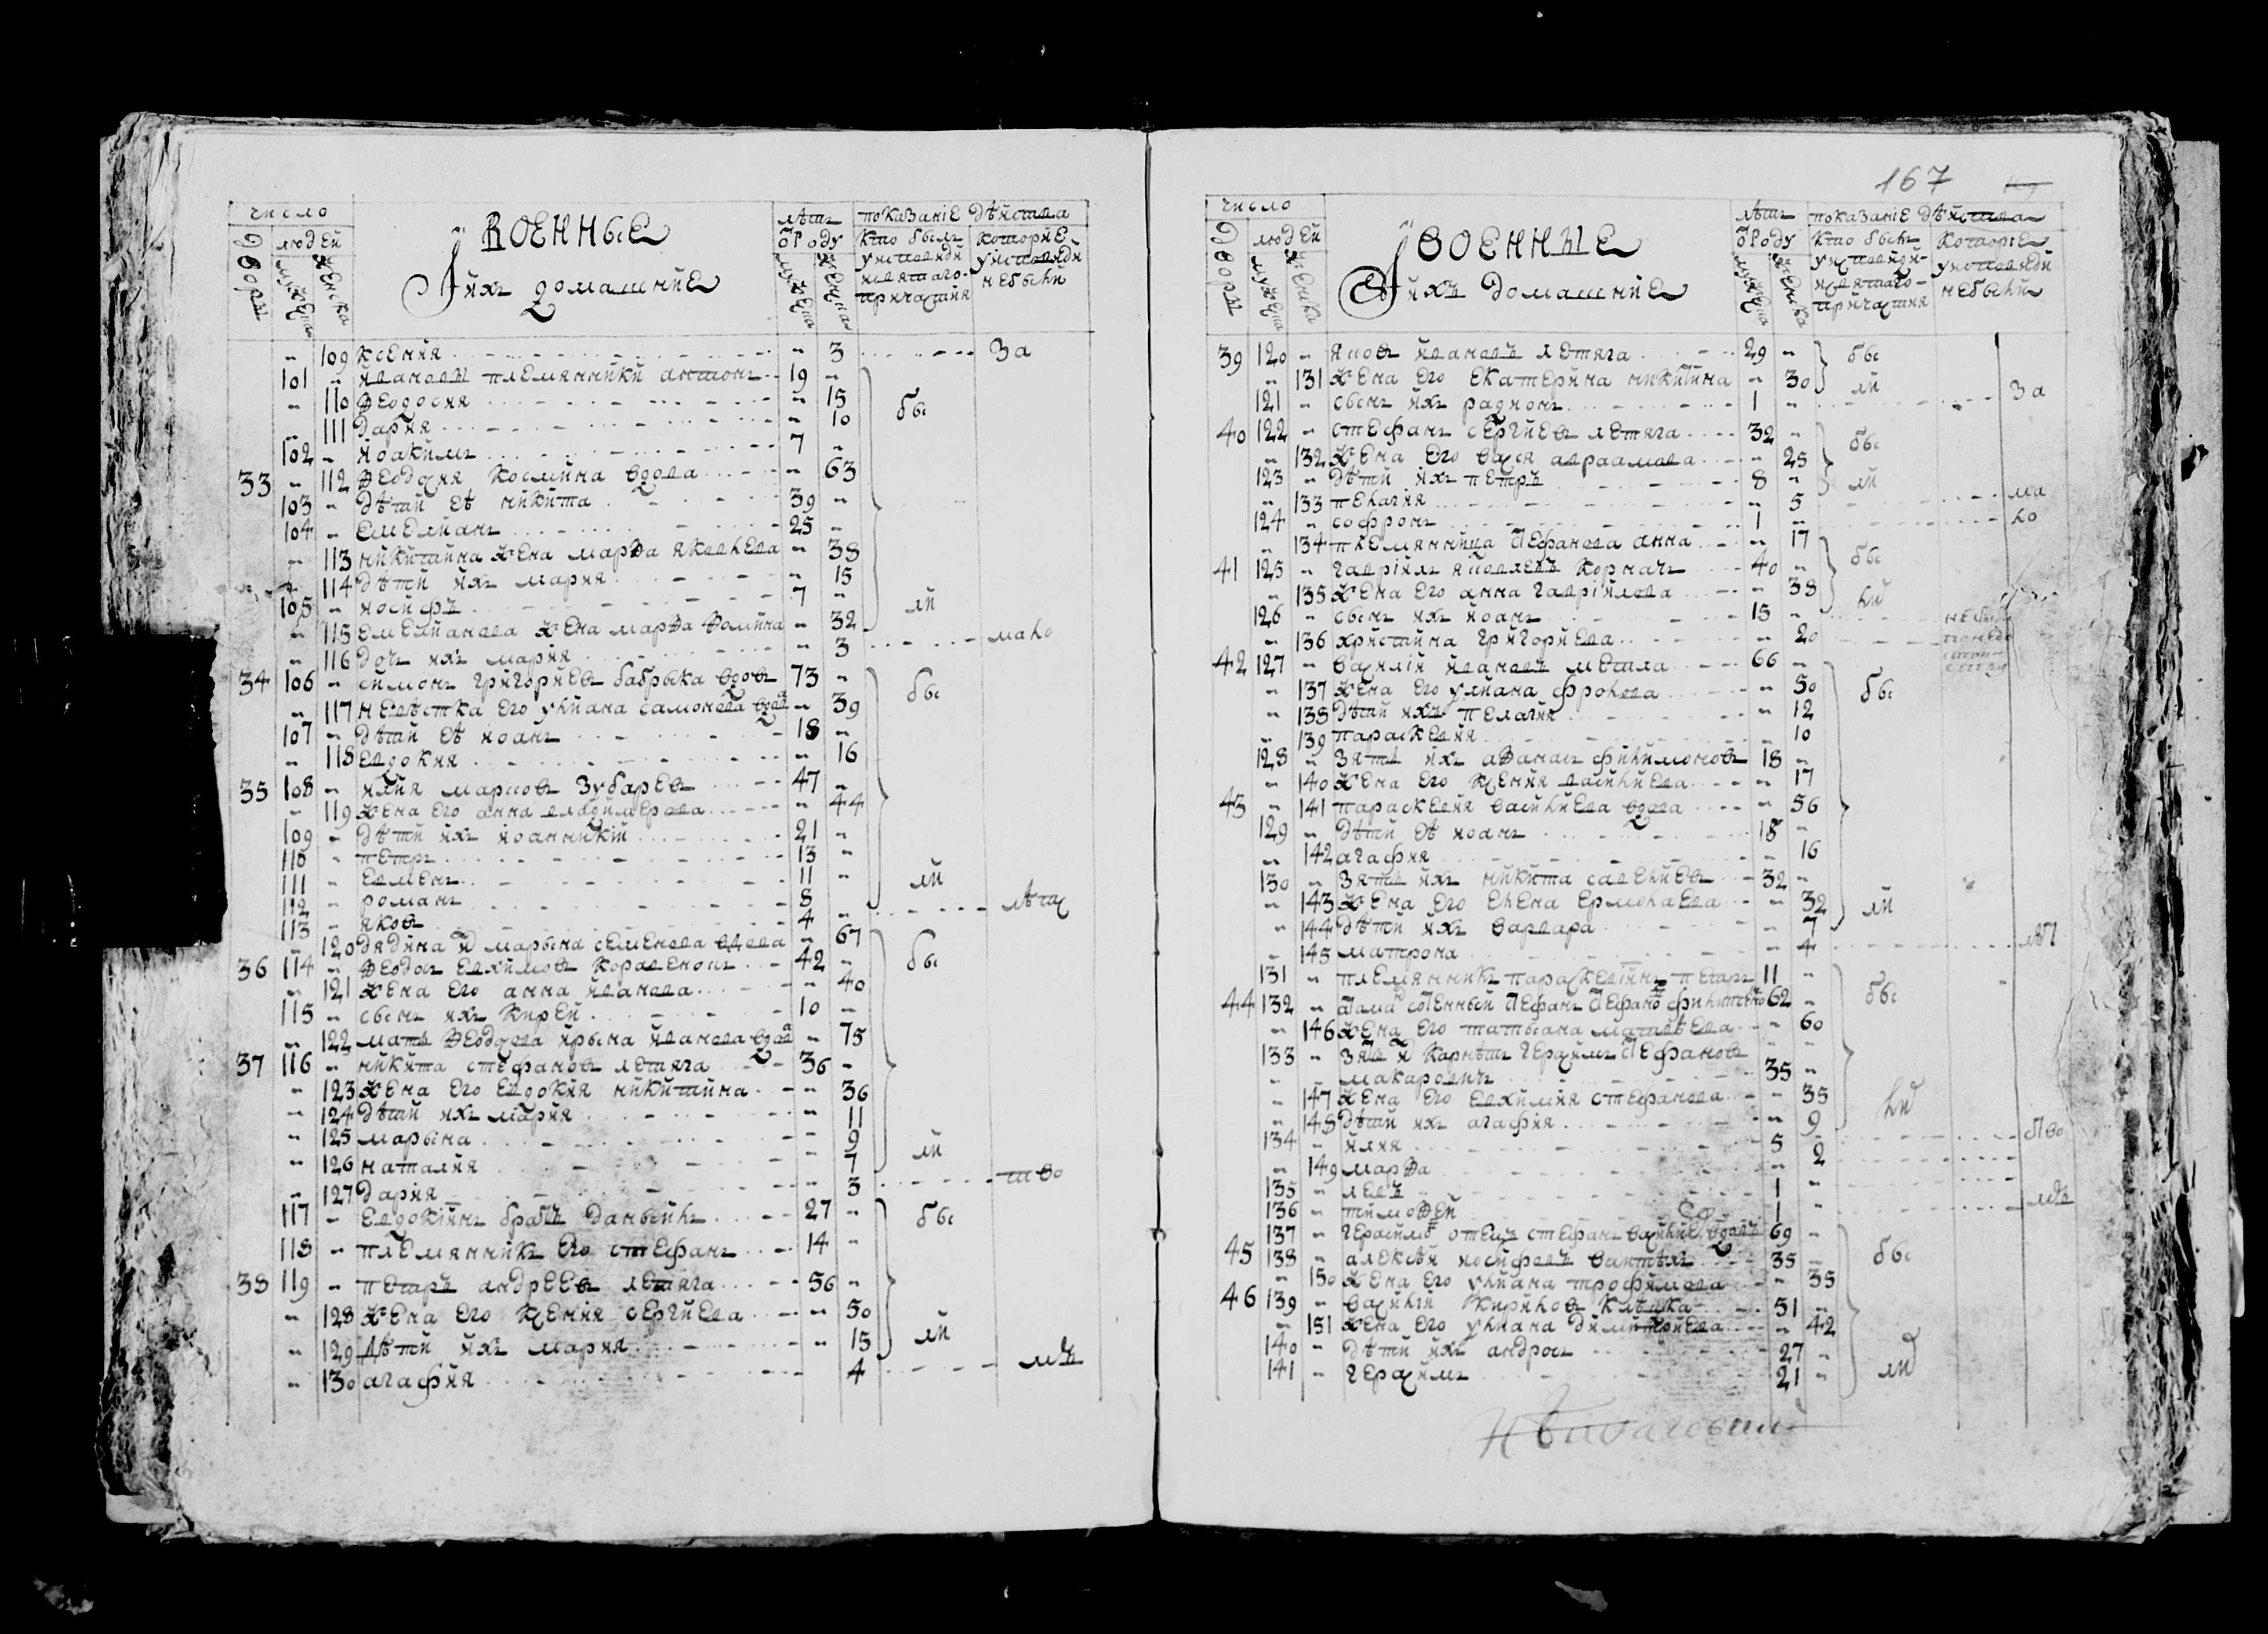 число
людей
дворы
мужеска
женска
военные
и ихъ домашние
лѣтъ
ѿ роду
мужеска
женска
показание дѣйства
кто былъ
у исповѣди
и святаго
причастия
которые
у исповѣди
небыли
" 109 ксения " 3 за
101 " ивановы племянники антонъ 19 "
" 110 ѳеодосия " 15 бы
" 111 дария " 10
102 " иоакимъ 7 "
33 " 112 ѳеодосия космина вдова " 63
103 " дѣти еѣ никита 39 "
104 " емелианъ 25 "
" 113 никитина жена марѳа яковлева " 38
" 114 дѣти ихъ мария " 15
105 " иосифъ 7 " ли
" 115 емелианова жена марѳа ѳомина " 32
" 116 дочь ихъ мария " 3 мало
34 106 " симонъ григориевъ бабрыка вдовъ 73 " бы
" 117 невѣстка его улиана самонова вдова " 39
107 " дѣти еѣ иоанъ 18 "
" 118 евдокия " 16
35 108 " илия марковъ зубаревъ 47 "
" 119 жена его анна владимерова " 44
109 " дѣти ихъ иоанникий 21 "
110 " петръ 13 "
111 " евменъ 11 " ли
112 " романъ 8 "
113 " яковъ 4 " лѣтс
" 120 дядина марына семенова вдова " 67
36 114 " ѳеодосъ евхимовъ 42 " бы
" 121 жена его анна иванова " 40
115 " сынъ ихъ кирей 10 "
" 122 мать ѳеодосева ирына иванова вдова " 75
37 116 " никита стефановъ летяга 36 "
" 123 жена его евдокия никитина " 36
" 124 дѣти ихъ мария " 11
" 125 марына " 9
" 126 наталия " 7 ли
" 127 дария " 3 тво
117 " евдокиинъ братъ даныилъ 27 " бы
118 " племянникъ его стефанъ 14 "
38 119 " петръ андреевъ летяга 56 "
" 128 жена его ксения сергиева " 50
" 129 дѣти ихъ мария " 15 ли
" 130 агафия " 4 мъ
167
число
людей
дворы
мужеска
женска
военные
и ихъ домашние
лѣтъ
ѿ роду
мужеска
женска
показание дѣйства
кто былъ
у исповѣди
и святаго
причастия
которые
у исповѣди
небыли
39 120 " яковъ ивановъ летяга 29 " бы
" 131 жена его екатерина никитина " 30 ли
121 " сынъ ихъ радионъ 1 " за
40 122 " стефанъ сергиевъ летяга 32 " бы
" 132 жена его васса авраамова " 25
123 " дѣти ихъ петръ 8 " ли
" 133 пелагия " 5 ма
124 " софронъ 1 " ло
" 134 племянница стефанова анна " 17
41 125 " гавриилъ яковлевъ кормачъ 40 " бы
" 135 жена его анна гавриилова " 38
126 " сынъ ихъ иоанъ 15 " ли
" 136 христина григориева " 20
42 127 " василий ивановъ метла 66 "
" 137 жена его улиана фролова " 50 бы
" 138 дѣти ихъ пелагия " 12
" 139 параскевия " 10
128 " зять ихъ аѳанасъ филимоновъ 18 "
" 140 жена его ксения василиева " 17
43 " 141 параскевия василиева вдова " 56
129 " дѣти еѣ иоанъ 18 "
" 142 агафия " 16
130 " зять ихъ никита савелиевъ 32 "
" 143 жена его елена ермолаева " 32 ли
" 144 дѣти ихъ варвара " 7
" 145 матрона " 4 лѣт
131 " племянникъ параскевиинъ петръ 11 "
44 132 " стефанъ 62 " бы
" 146 жена его татыана матвѣева " 60
133 " зять герасимъ стефановъ
макаровичъ 35 "
" 147 жена его евхимия стефанова " 35
" 148 дѣти ихъ агафия " 9 ли
134 " илия 5 " ство
" 149 марѳа " 2
135 " левъ 1 "
136 " тимоѳей 1 " мъ
137 " герасимовъ отецъ стефанъ вдовъ 69 "
45 138 " алексѣй иосифовъ 35 " бы
" 150 жена его улиана трофимова " 35
46 139 " василий кириловъ 51 "
" 151 жена его улиана димитриева " 42
140 " дѣти ихъ андрос 27 "
141 " герасимъ 21 " ли